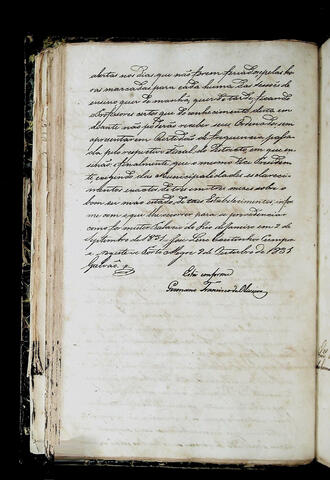 abertas nos dias que não forem feriados, pelas ho
ras marcadas para cada huma das sessões de
ensino quer de manhã, quer de tarde, ficando
os Professores certos que do conhecimento desta em
diante não poderão receber seus Ordenados sem
apresentarem Certidões de frequencia passa
da pelo respectivo Fiscal do Districto, em que en
sinão, e finalmente que o mesmo Presiden
te exigindo das Municipalidades esclareci
mentos exactos de tres em tres mezes sobre o
bom ou máo estado de taes Estabelecimentos, infor
me com o que lhe occorrer para se providenciar
como for muito. Palacio do Rio de Janeiro em 2 de
Septembro de 1831 José Lino Coutinho Cumpra
e registe-se Porto Alegre 3 de Outubro de 1831
Galvão
Está conforme
Germano Francisco de Oliveira